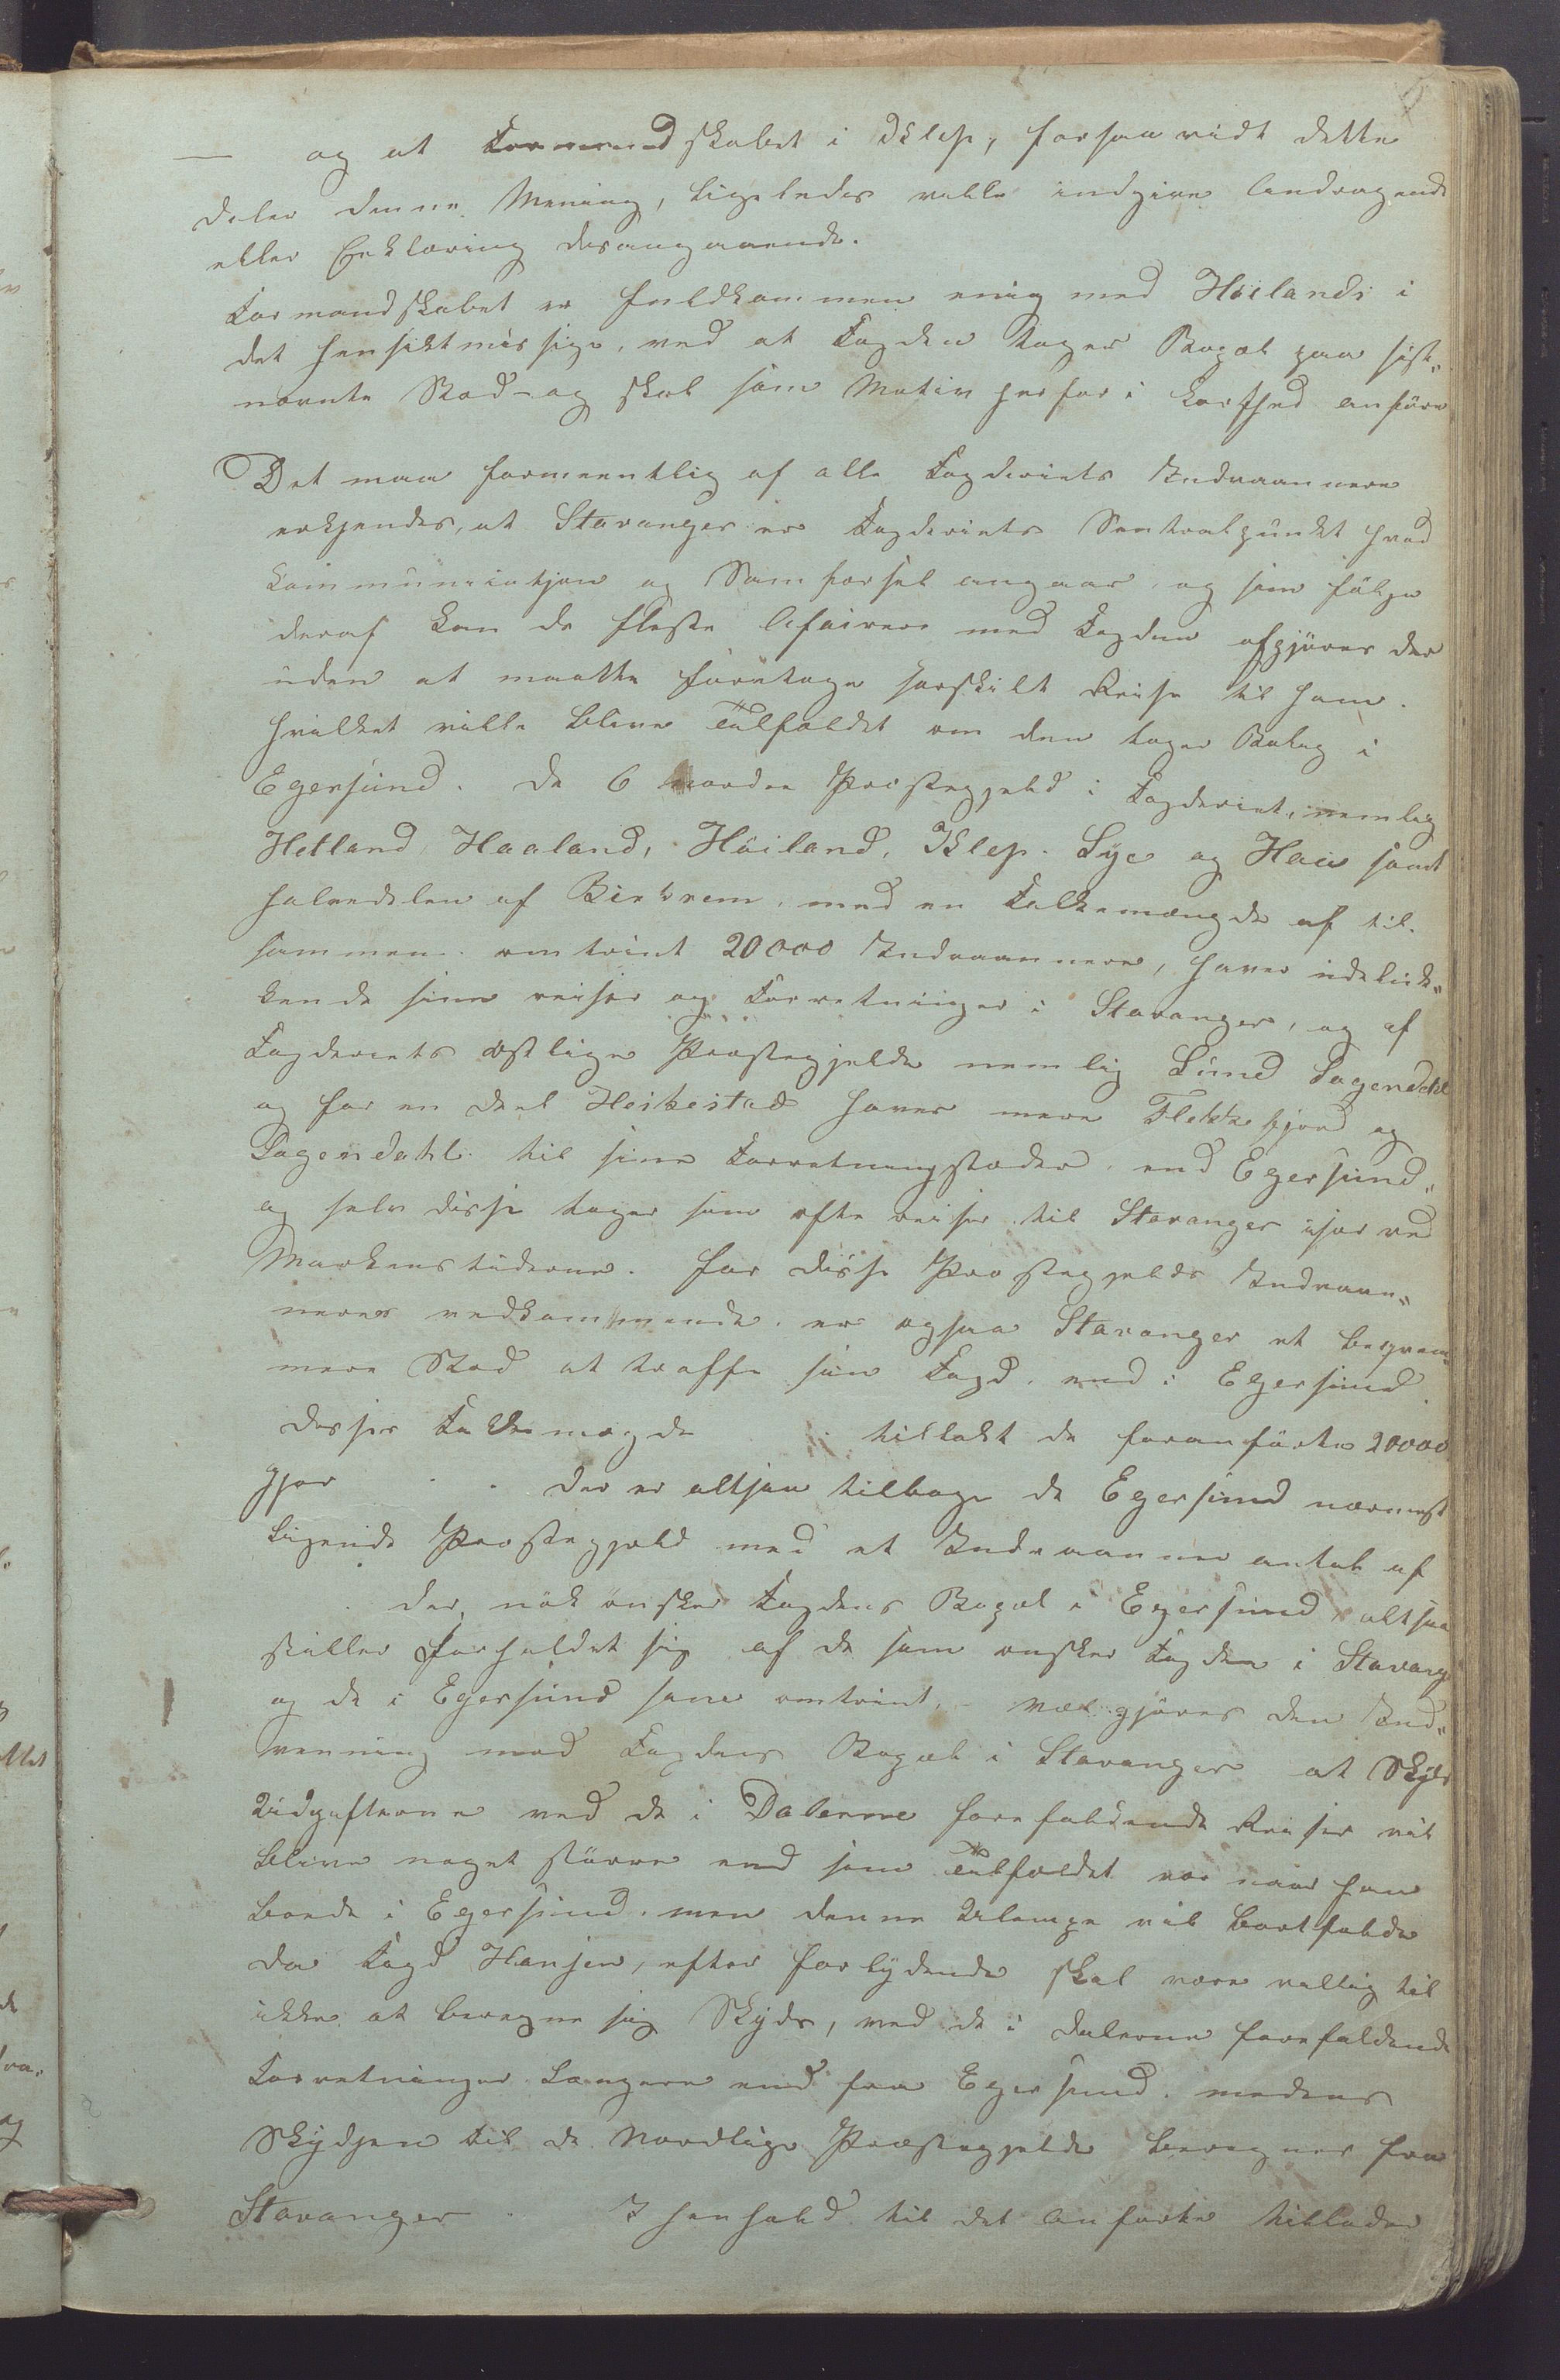 — og at Formandskabet i Klep, forsaavidt dette
deler denne Mening, ligeledes ville indgive Andragende
eller Erklæring desangaaende.
Formandskabet er fuldkommen enig med Höilands i
det Hensiktmessige, ved at Fogden tager Bopæl paa sist„
nævnte Stad - og skal som Motiv herfor i Korthed anföre
Det maa formeentlig af alle Fogderiets Indvaannere
erkjendes, at Stavanger er Fogderiets Sentralpunkt hvad
Kommuniciatjon og Samfærsel angaar, og som fölge
deraf kan de fleste Afairere med Fogden afgjöres der
uden at maatte foretage særskilt Reise til ham.
hvilket ville blive Tilfældet om den tager Bolig i
Egersund. De 6 nordre Præstegjeld i Fogderiet, nemlig
Hetland, Haaland, Höiland, Klep. Lye og Haa samt
halvedelen af Birkrem, med en Falkemængde af til.
sammen omtrint 20000 Indvaannere, haver udeluk„
kende sine reiser og Forretninger i Stavanger, og af
Fogderiets østlige Præstegjelde nemlig Lund Sogendahl
og for en deel Heskestad haver mere Flekkefjord og
Sogendahl til sine Forretningstæder, end Egersund„
og selv disse tager som ofte reiser til Stavanger især ved
Markenstiderne. for disse Præstegjelds Indvaan„
neres vedkommende er ogsaa Stavanger et beqvem„
mere Stad at træffe sin Fogd, end i Egersund
desses Falkemægde tillakt de foranförte 20000
gjør der er altsaa tilbage de Egersund nærmest
ligende Præstegjeld med et Indvaanner antal af
der, nok ønsker Fogdens Bopæl i Egersund, altsaa
stiller forholdet sig af de som ønsker Fogden i Stavang
og de i Egersund som omtrint. Vel gjöres den Ind„
venning mod Fogdens Bopæl i Stavanger at Skyds
Udgifterne ved de i Dalerne forefaldende Reiser vil
blive noget större end som Tilfældet var naar han
boede i Egersund. men denne Ulempe vil bortfalde
da Fogd Hansen, efter forlydende skal være villig til
ikke at beregne sig Skyds, ved de i Dalerne forefaldende
Forretninger længere end fra Egersund. medens
Skydsen til de Nordlige Præstegjelde beregnes fra
Stavanger I Henhold til det Anførte tillader